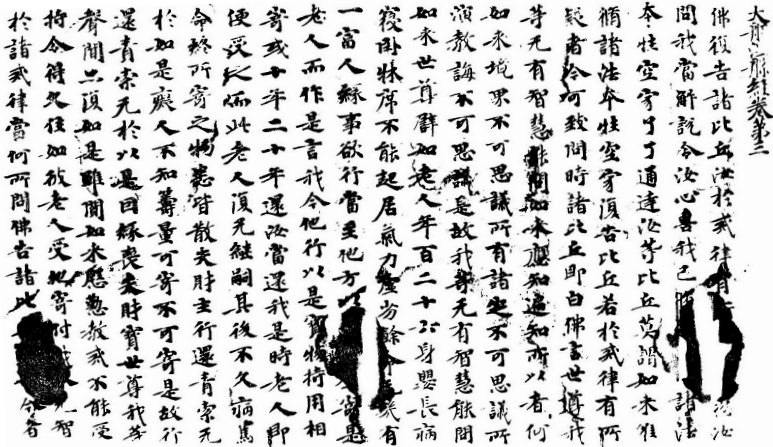 大般涅槃經卷第三
佛復告諸比丘汝於戒律有汝
問我當解說令汝心喜我已諸法
本性空寂了了通達汝等比丘莫謂如來唯
脩諸法本性空寂復告比丘若於戒律有所
疑者今可致問時諸比丘即白佛言世尊我
等无有智慧能問如來應知遍知所以者何
如來境界不可思議所有諸定不可思議所
演教誨不可思議是故我等无有智慧能問
如來世尊譬如老人年百二十六身嬰長病
寢卧牀席不能起居氣力虛劣餘命无幾有
一富人緣事欲行當至他方以
老人而作是言我今他行以是寶物持用相
寄或十年二十年還汝當還我是時老人即
便受之而此老人復无繼嗣其後不久病篤
命終所寄之物悉皆散失財主行還責索无
於如是癡人不知籌量可寄不可寄是故行
還責索无於以是因緣喪失財寶世尊我等
聲聞亦復如是雖聞如來慇懃教戒不能受
持令得久住如彼老人受他寄付无智
於諸戒律當何所問佛告諸比今者